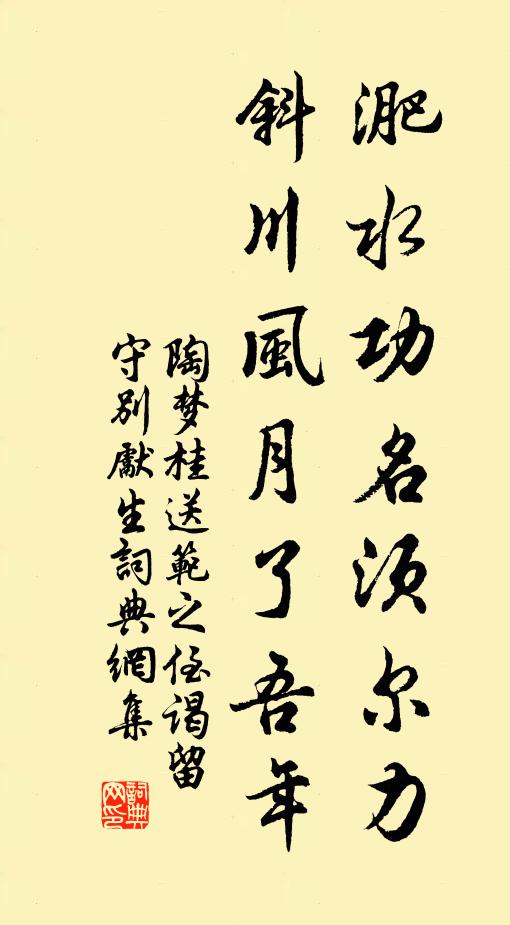 淝水功名须尔力
斜川風月了吾年
陶梦桂送範之侄謁留
守别獻生詞典網集
詞典网印